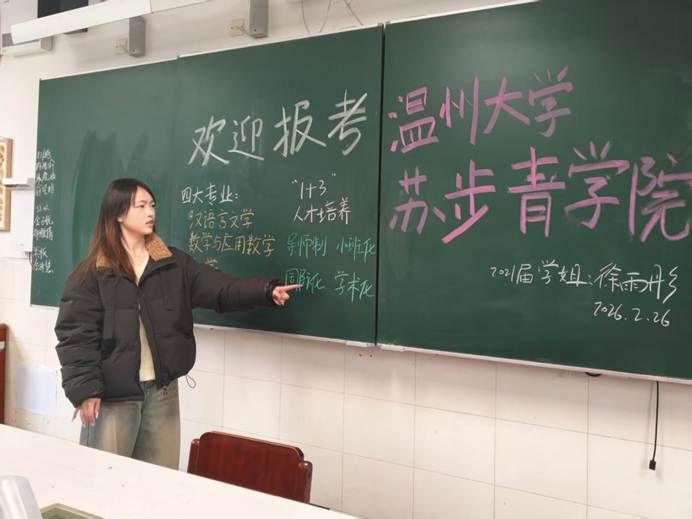 欢迎报考
温州大学
苏步青学院
四大专业：
汉语言文学
数学与应用数学
学
"1+3"
人才培养
导师制 小班化
国际化 学术化
2021届学姐：徐雨彤
2026.2.26